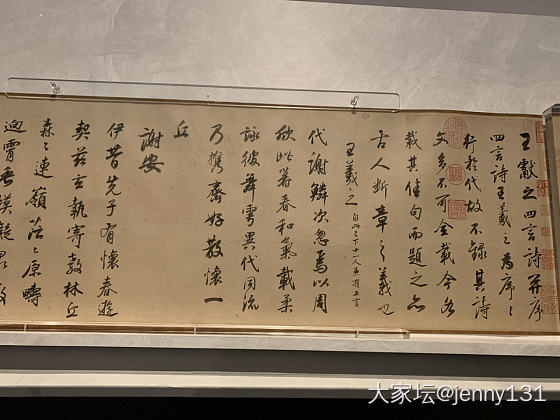 王獻之四言詩并序
四言詩王羲之為序〻
行於代故不錄其詩
文多不可全載今各
裁其佳句而題之亦
古人斷章之義也
王羲之 自此已下十一人並有五言
代謝鱗次忽焉以周
欣此暮春和氣載柔
詠彼舞雩異代同流
乃攜齊好散懷一
丘
謝安
伊昔先子有懷春遊
契茲言執寄敖林丘
森〻連嶺茫〻原疇
迥霄垂
大家坛@jenny131